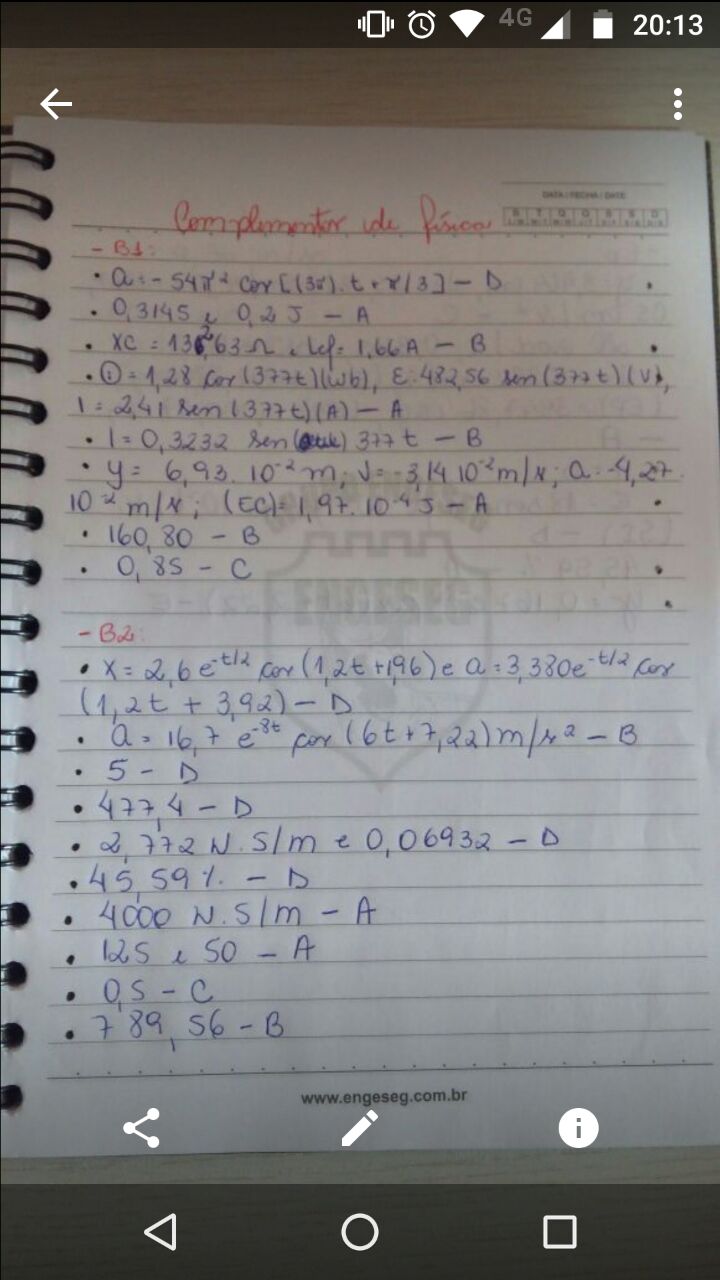 4G 20:13
DATA / FECHA / DATE
D T Q Q S S D
Complementor de física
- B1:
• a = - 54π² cor [(3π). t + π/3] - D
• 0,314s e 0,2 J - A
• XC = 132,63 Ω e Ief = 1,66A - B
• Φ = 1,28 cor (377t)(wb), ε = 482,56 sen (377t)(V),
I = 2,41 sen (377t)(A) - A
• I = 0,3232 sen 377t - B
• y = 6,93. 10⁻² m; V = -3,14 10⁻² m/s; a = -4,27.
10⁻² m/s; (EC) = 1,97. 10⁻⁴ J - A
• 160,80 - B
• 0,85 - C
ENGESEG
- B2:
• X = 2,6 e^-t/2 cor (1,2t + 1,96) e a = 3,380e^-t/2 cor
(1,2t + 3,92) - D
• a = 16,7 e^-8t cor (6t + 7,22) m/s² - B
• 5 - D
• 477,4 - D
• 2,772 N.S/m e 0,06932 - D
• 45,59% - D
• 4000 N.S/m - A
• 125 e 50 - A
• 0,5 - C
• 789,56 - B
www.engeseg.com.br